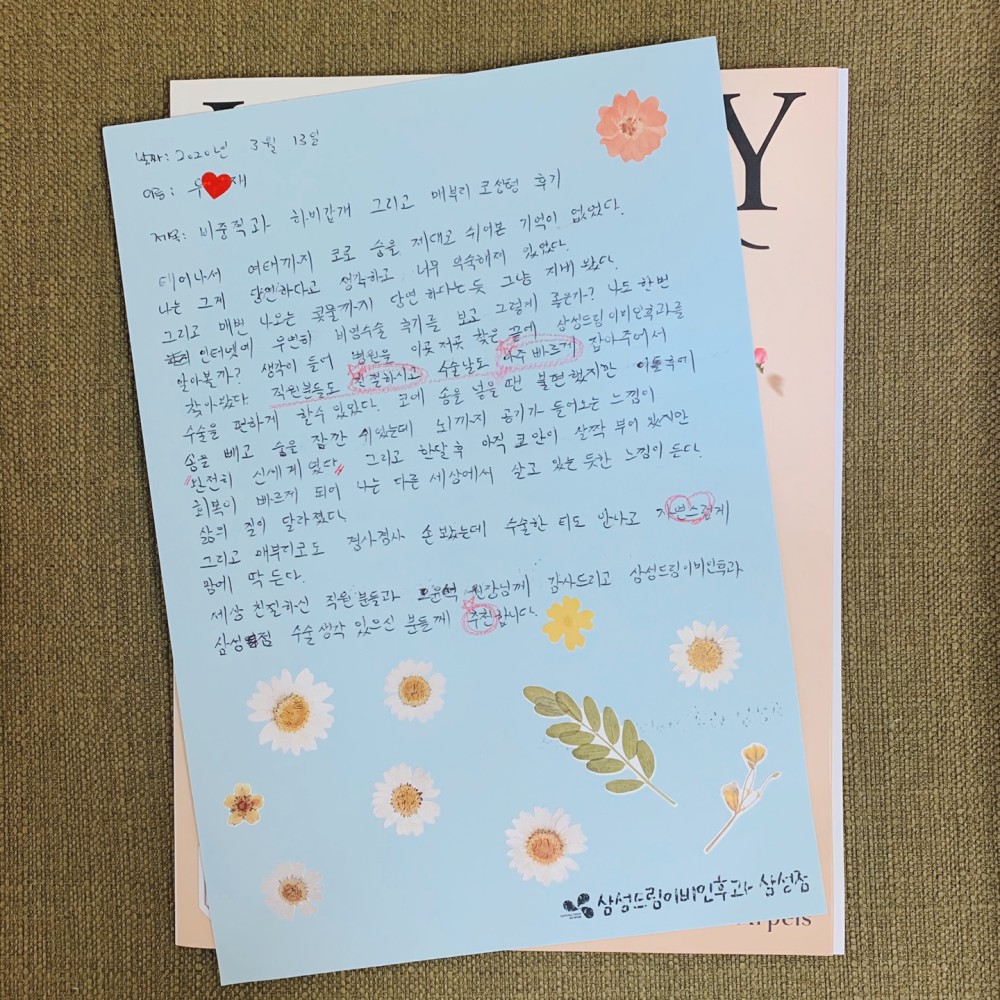 날짜: 2020년 3월 13일
이름: 우 재
제목: 비중격과 하비갑개 그리고 매부리 코성형 후기
태어나서 여태까지 코로 숨을 제대로 쉬어본 기억이 없었다.
나는 그게 당연하다고 생각하고 너무 익숙해져 있었다.
그리고 매번 나오는 콧물까지 당연하다는 듯 그냥 지내 왔다.
인터넷에 우연히 비염수술 후기를 보고 그렇게 좋은가? 나도 한번
알아볼까? 생각이 들어 병원을 이곳 저곳 찾은 끝에 삼성드림이비인후과를
찾아갔다. 직원분들도 친절하시고 수술날도 아주 빠르게 잡아주어서
수술을 편하게 할수 있었다. 코에 솜을 넣을 땐 불편했지만 이틀후에
솜을 빼고 숨을 잠깐 쉬었는데 뇌까지 공기가 들어오는 느낌이
"완전히 신세계였다" 그리고 한달 후 아직 코 안이 살짝 부어 있지만
회복이 빠르게 되어 나는 다른 세상에서 살고 있는 듯한 느낌이 든다.
삶의 질이 달라졌다.
그리고 매부리코도 겸사겸사 손 봤는데 수술한 티도 안나고 자연스럽게
맘에 딱 든다.
세상 친절하신 직원 분들과 원장님께 감사드리고 삼성드림이비인후과
삼성점 수술 생각 있으신 분들께 추천합니다.
삼성드림이비인후과 삼성점
Y
Arpels